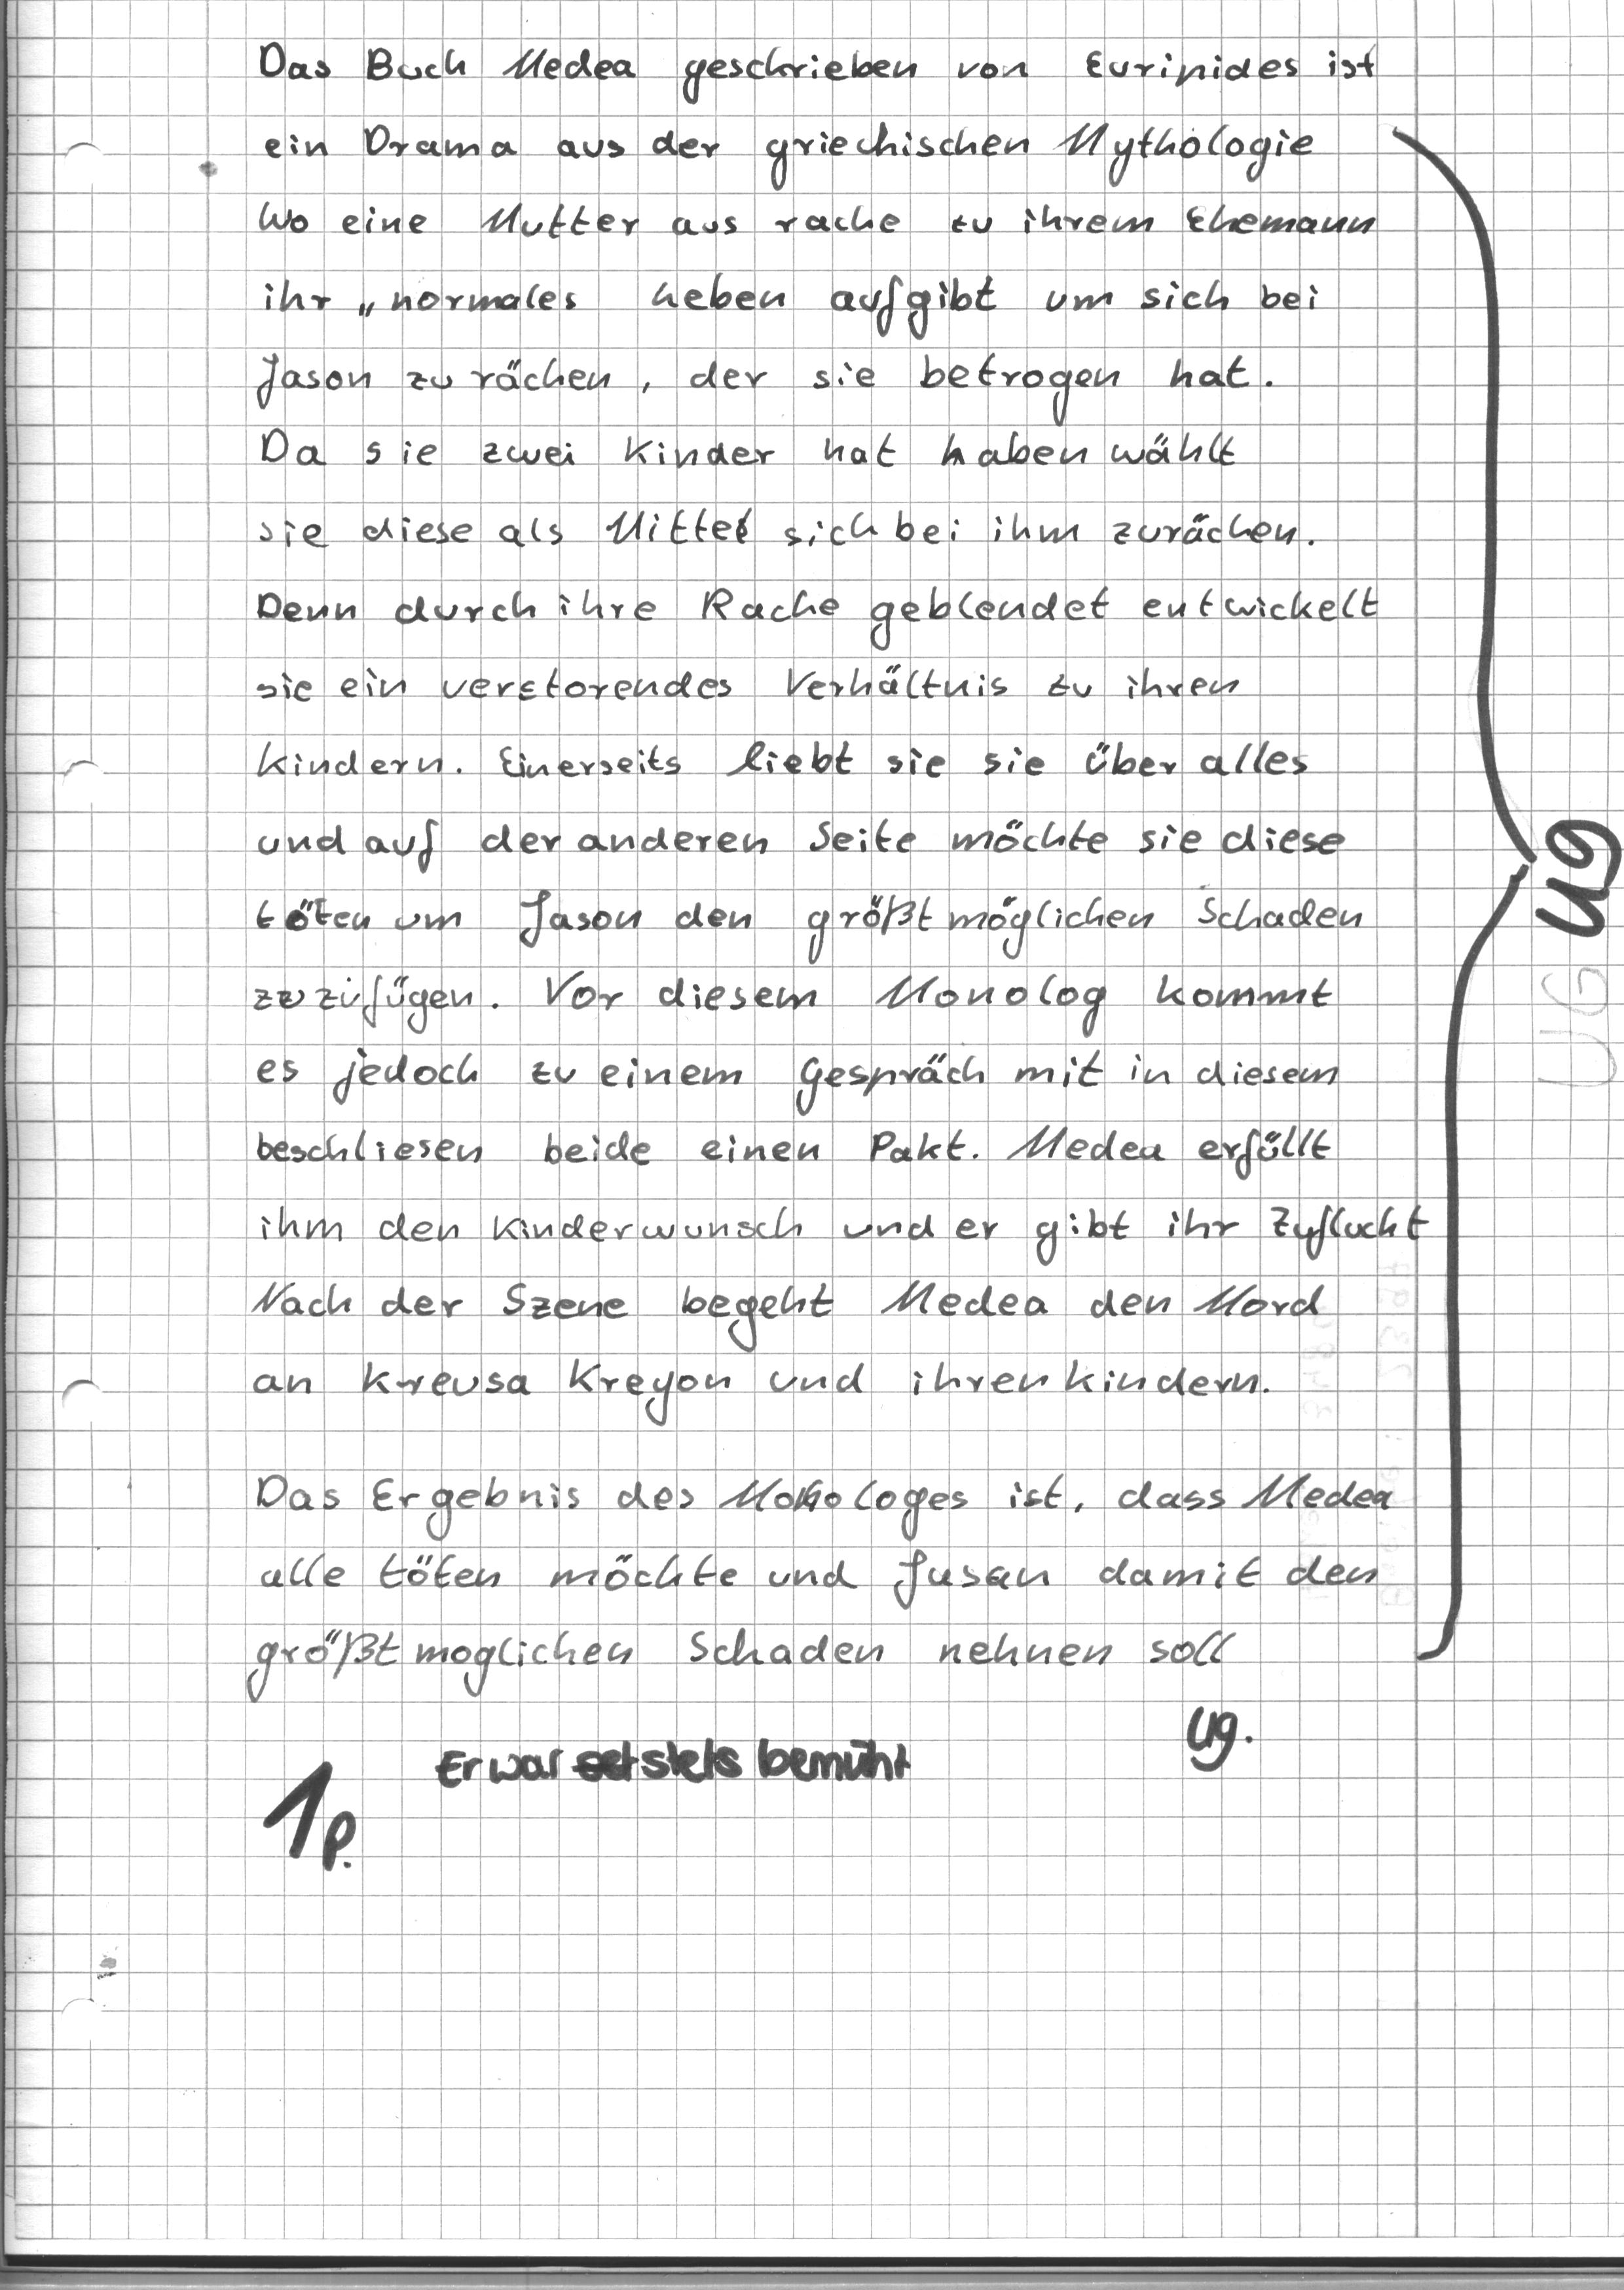 Das Buch Medea geschrieben von Euripides ist
ein Drama aus der griechischen Mythologie
Wo eine Mutter aus rache zu ihrem Ehemann
ihr „normales Leben aufgibt um sich bei
Jason zu rächen, der sie betrogen hat.
Da sie zwei Kinder hat haben wählt
sie diese als Mittel sich bei ihm zurächen.
Denn durch ihre Rache geblendet entwickelt
sie ein verstorendes Verhältnis zu ihren
Kindern. Einerseits liebt sie sie über alles
und auf der anderen Seite möchte sie diese
töten um Jason den größtmöglichen Schaden
zuzufügen. Vor diesem Monolog kommt
es jedoch zu einem Gespräch mit in diesem
beschliesen beide einen Pakt. Medea erfüllt
ihm den Kinderwunsch und er gibt ihr Zuflucht
Nach der Szene begeht Medea den Mord
an Kreusa Kreyon und ihren kindern.
Das Ergebnis des Monologes ist, dass Medea
alle töten möchte und Jusan damit den
größtmoglichen Schaden nehnen soll
ug.
Er war stets bemüht
1p.
ug
UG